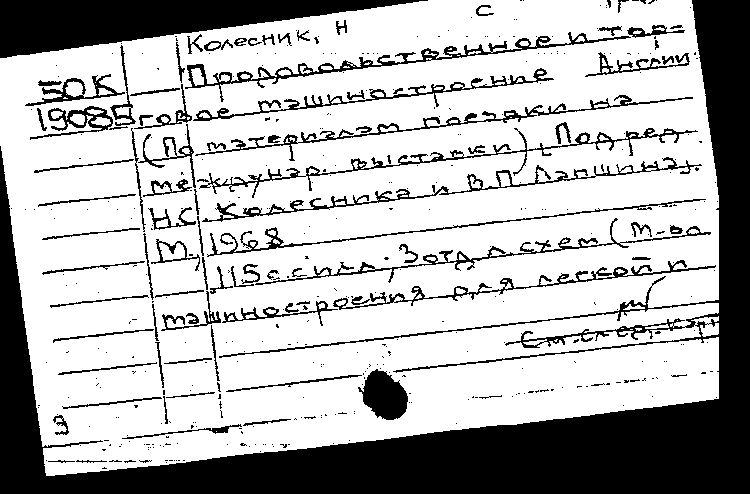 Колесник, Н С
50К Продовольственное и тор-
19085 говое машиностроение Англии
(По материалам поездки на
междунар. выставки). Под ред.
Н.С. Колесника и В.П. Лапшина.
М., 1968
115с с илл.; 3 отд. л схем (М-во
машиностроения для легкой и
См. след. карт